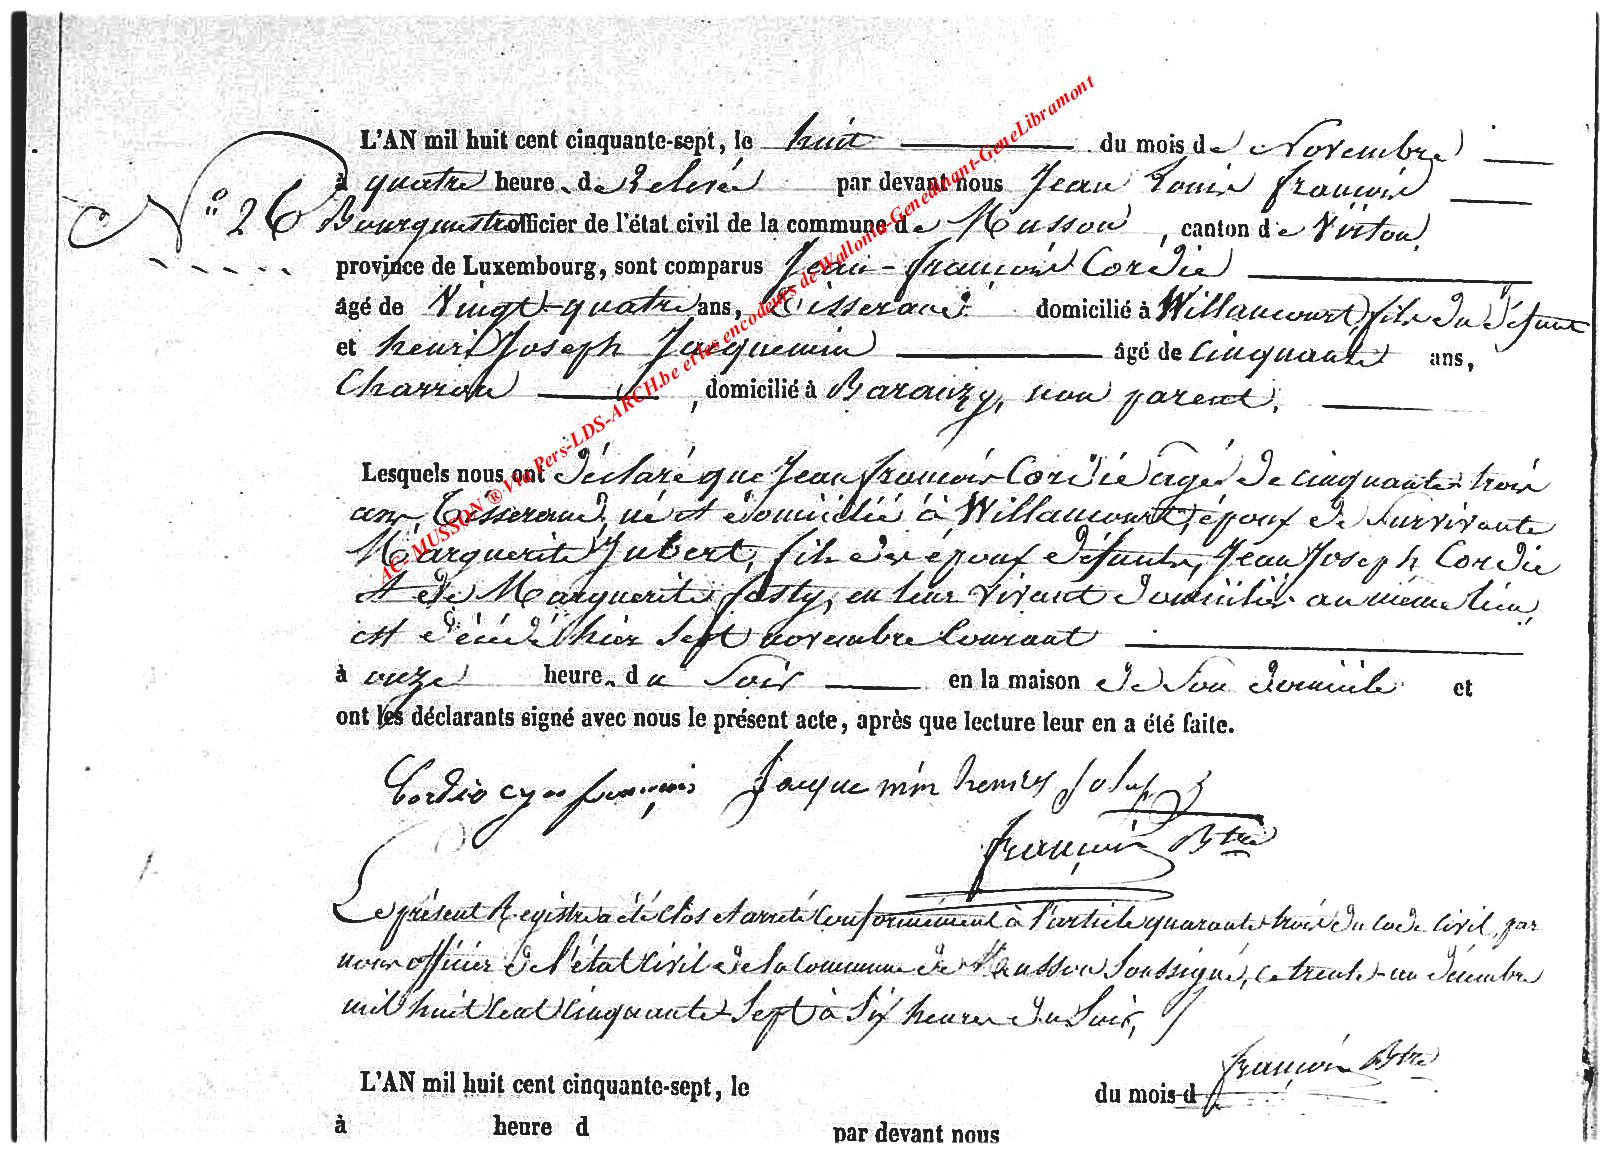 L'AN mil huit cent cinquante-sept, le huit du mois de Novembre
à quatre heures de relevée par devant nous Jean Louis François
N° 26 Bourgmestre officier de l'état civil de la commune de Musson, canton de Virton,
province de Luxembourg, sont comparus Jean-François Cordie
âgé de Vingt-quatre ans, Tisserand domicilié à Willancourt, fils du défunt
et henri Joseph Jacquemin âgé de cinquante ans,
Charron, domicilié à Baranzy, non parent.
Lesquels nous ont déclaré que Jean François Cordié agé de cinquante trois
ans, Tisserand, né et domicilié à Willancourt, époux de Survivante
Marguerite Jubert, fils des époux défunts, Jean Joseph Cordie
et de Marguerite fosty, en leur vivant domiciliés au même lieu,
est décédé hier sept novembre Courant
à onze heures du Soir en la maison de Son domicile et
ont les déclarants signé avec nous le présent acte, après que lecture leur en a été faite.
Cordie françois Jacqueminn henrey Joseph
françois Btre
Le présent Registre a été clos et arrêté Conformément à l'article quarante-trois du code civil, par
nous officier de l'état civil de la commune de Musson Soussigné, ce trente-un décembre
mil huit cent cinquante-Sept à Six heures du Soir,
françois Btre
L'AN mil huit cent cinquante-sept, le du mois d
à heure d par devant nous
AC= MUSSON ® Via Pers-LDS-ARCH.be et les encodeurs de Wallonia-Genedinant-GeneLibramont